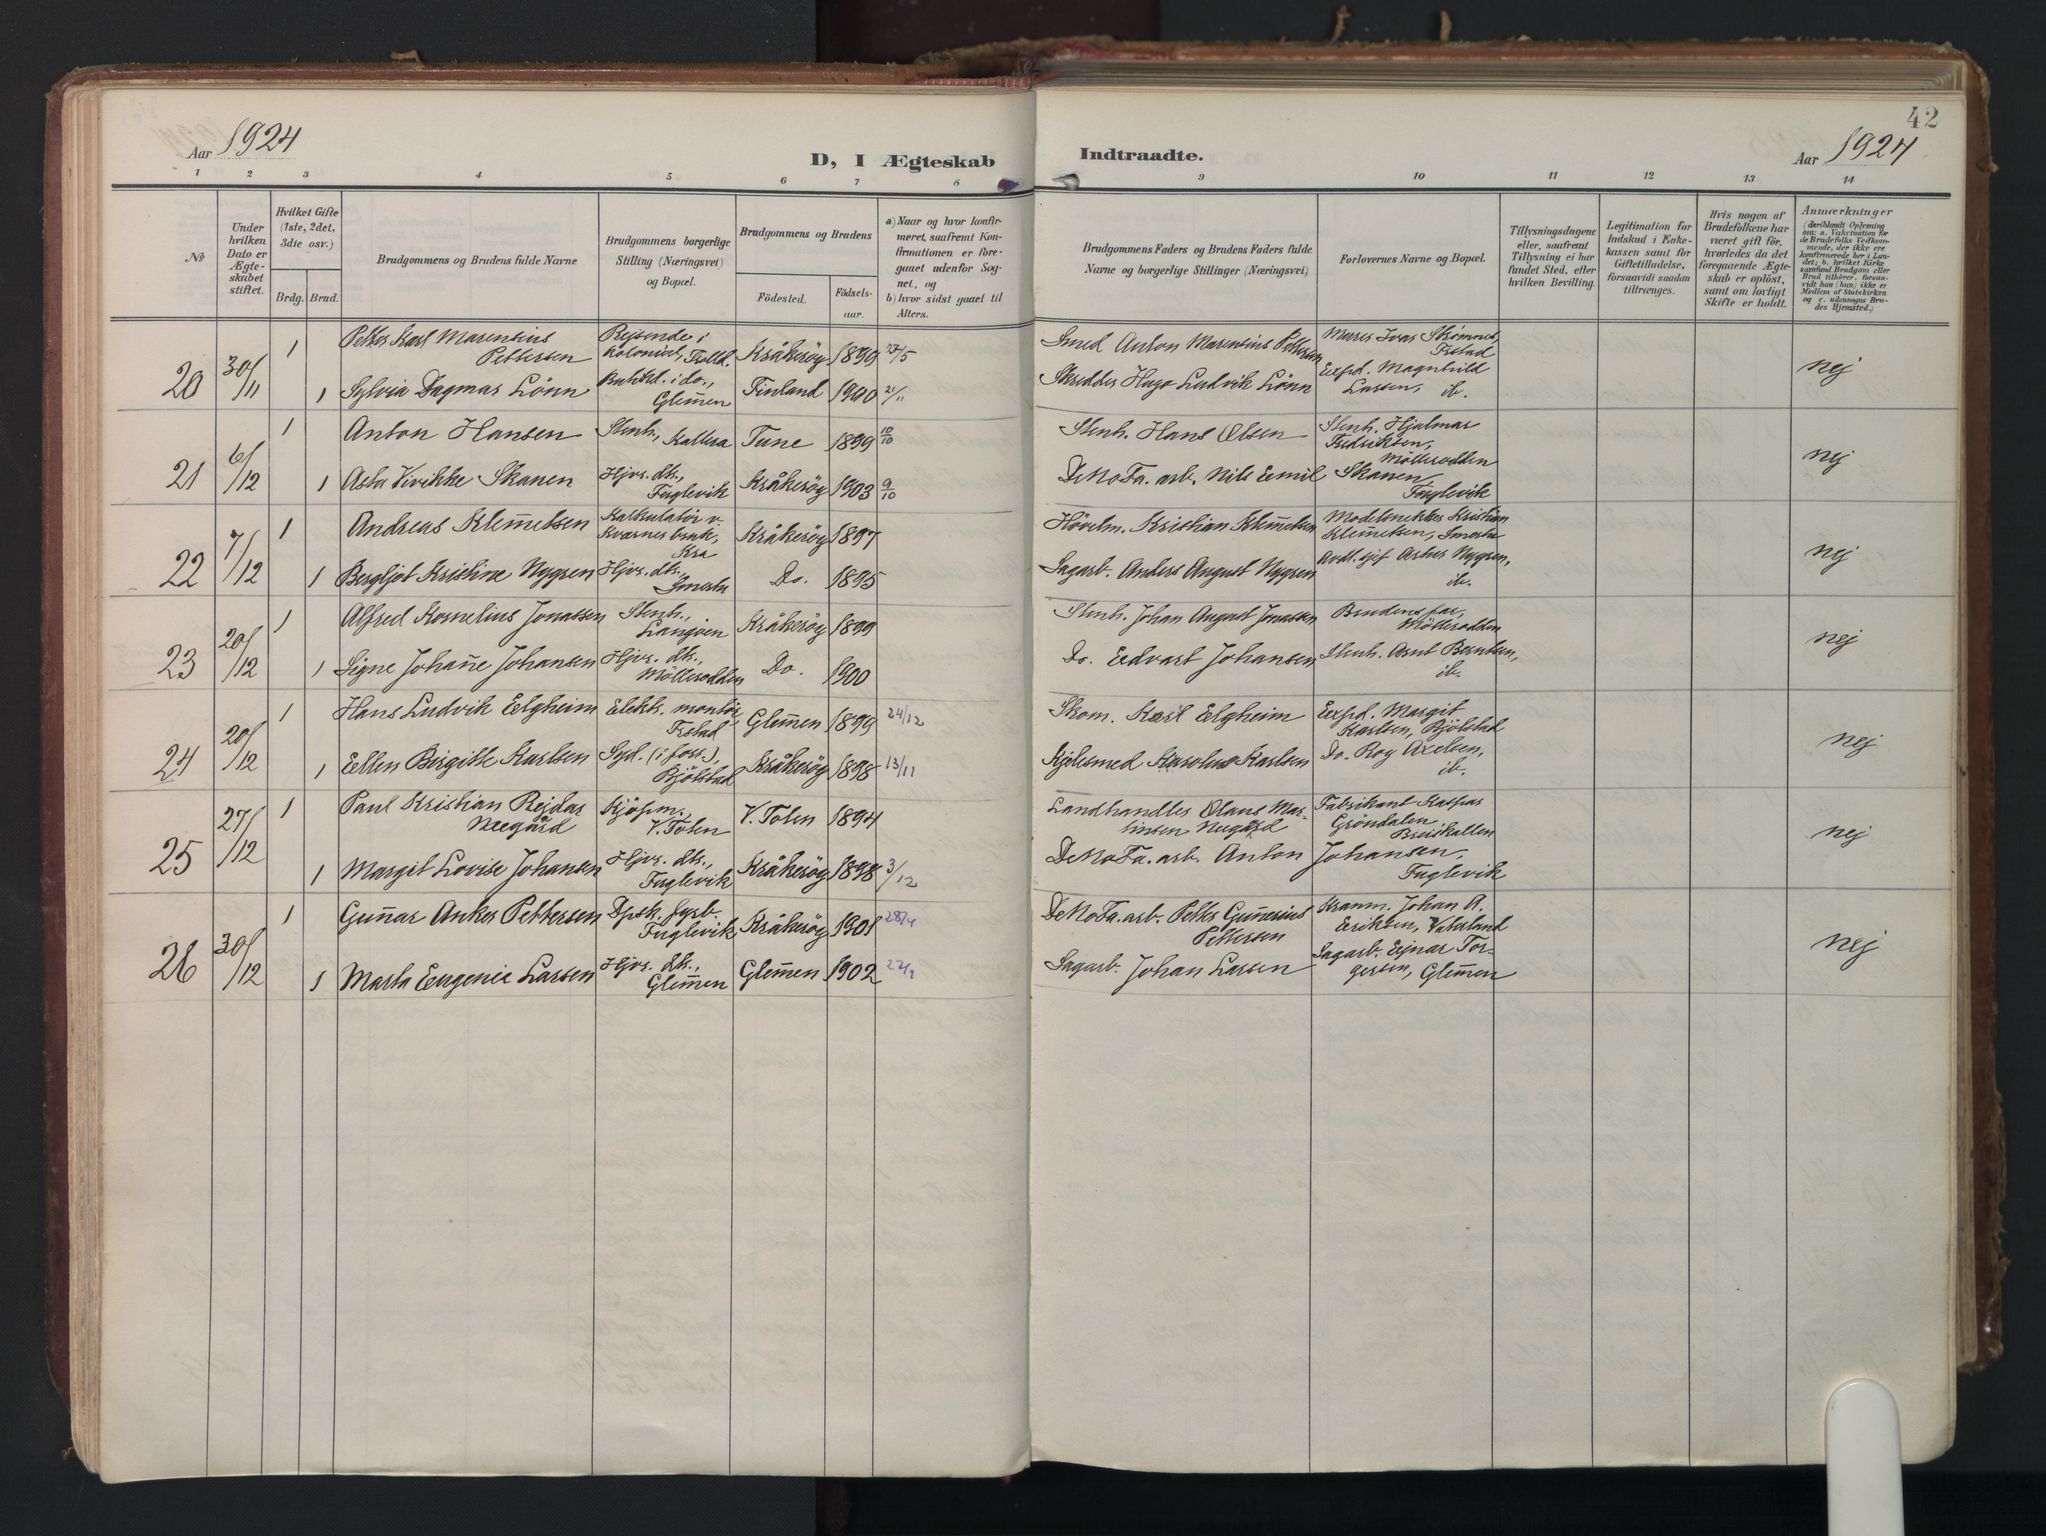 42
Aar 1924
D, I Ægteskab Indtraadte.
Aar 1924
1 2 3 4 5 6 7 8 9 10 11 12 13 14
No
Under hvilken Dato er Ægteskabet stiftet.
Hvilket Gifte (1ste, 2det, 3die osv.)
Brdg. Brud.
Brudgommens og Brudens fulde Navne
Brudgommens borgerlige Stilling (Næringsvei) og Bopæl.
Brudgommens og Brudens
Födested. Födsels-aar.
a) Naar og hvor konfirmeret, saafremt Konfirmationen er foregaaet udenfor Sognet, og
b) hvor sidst gaaet til Alters.
Brudgommens Faders og Brudens Faders fulde Navne og borgerlige Stillinger (Næringsvei)
Forlovernes Navne og Bopæl.
Tillysningsdagene eller, saafremt Tillysning ei har fundet Sted, efter hvilken Bevilling.
Legitimation for Indskud i Enkekassen samt for Giftetilladelse, forsaavidt saadan tiltrænges.
Hvis nogen af Brudefolkene har været gift för, hvorledes da det foregaaende Ægteskab er oplöst, samt om lovligt Skifte er holdt.
Anmærkninger
20 30/11
1 Petter Karl Marensius Pettersen Reisende i kolonial, Kråkeröy 1899 27/5 Smed Anton Marensius Pettersen Ivar Strömnes, Frstad nej
1 Sylvia Dagmar Lönn i do., Glemmen Finland 1900 21/11 Skredder Hugo Ludvik Lönn Exped. Magnhild Larsen, ib.
21 6/12
1 Anton Hansen Stenh., Kallera Tune 1899 10/10 Stenh. Hans Olsen Stenh. Hjalmar Fredriksen, Möllerodden nej
1 Asta Vivikke Skanen Hjvs. dtr., Fuglevik Kråkeröy 1903 9/10 DeNoFa. arb. Nils Emil Skanen, Fuglevik
22 7/12
1 Andreas Klemmetsen Kalkulatör v. Kværnes bruk, Kra Kråkeröy 1897 Hövelm. Kristian Klemmetsen Modelsnekker Kristian Klemmetsen, Smerta nej
1 Bergljot Kristine Nygren Hjvs. dtr., Smerta Do. 1895 Sagarb. Anders August Nygren Nygren, ib.
23 20/12
1 Alfred Kornelius Jonassen Stenh., Langöen Kråkeröy 1899 Stenh. Johan August Jonassen Brudens far, Möllerodden nej
1 Signe Johanne Johansen Hjvs. dtr., Möllerodden Do. 1900 Do. Edvart Johansen Stenh. Arnt Berntsen, ib.
24 20/12
1 Hans Ludvik Elgheim Elektr. montör, Frstad Glemmen 1899 24/12 Skom. Karl Elgheim Exped. Margit Karlsen, Bjölstad nej
1 Ellen Birgitte Karlsen Syd. (i forr.), Bjölstad Kråkeröy 1898 13/11 Kjelesmed Karolus Karlsen Do. Roy Axelsen, ib.
25 27/12
1 Paul Kristian Rejdar Neegård Kjöpm., V. Toten V. Toten 1894 Landhandler Olaus Martinsen Neegård Fabrikant Kaspar Gröndalen, Breiskallen nej
1 Margit Lovise Johansen Hjvs. dtr., Fuglevik Kråkeröy 1898 3/12 DeNoFa. arb. Anton Johansen, Fuglevik
26 30/12
1 Gunnar Anker Pettersen Dpsk. fyrb. Fuglevik Kråkeröy 1901 28/4 DeNoFa. arb. Petter Gunerius Pettersen Kranm. Johan A. Eriksen, Vaterland nej
1 Marta Eugenie Larsen Hjvs. dtr., Glemmen Glemmen 1902 Sagarb. Johan Larsen Sagarb. Ejnar Torgersen, Glemmen